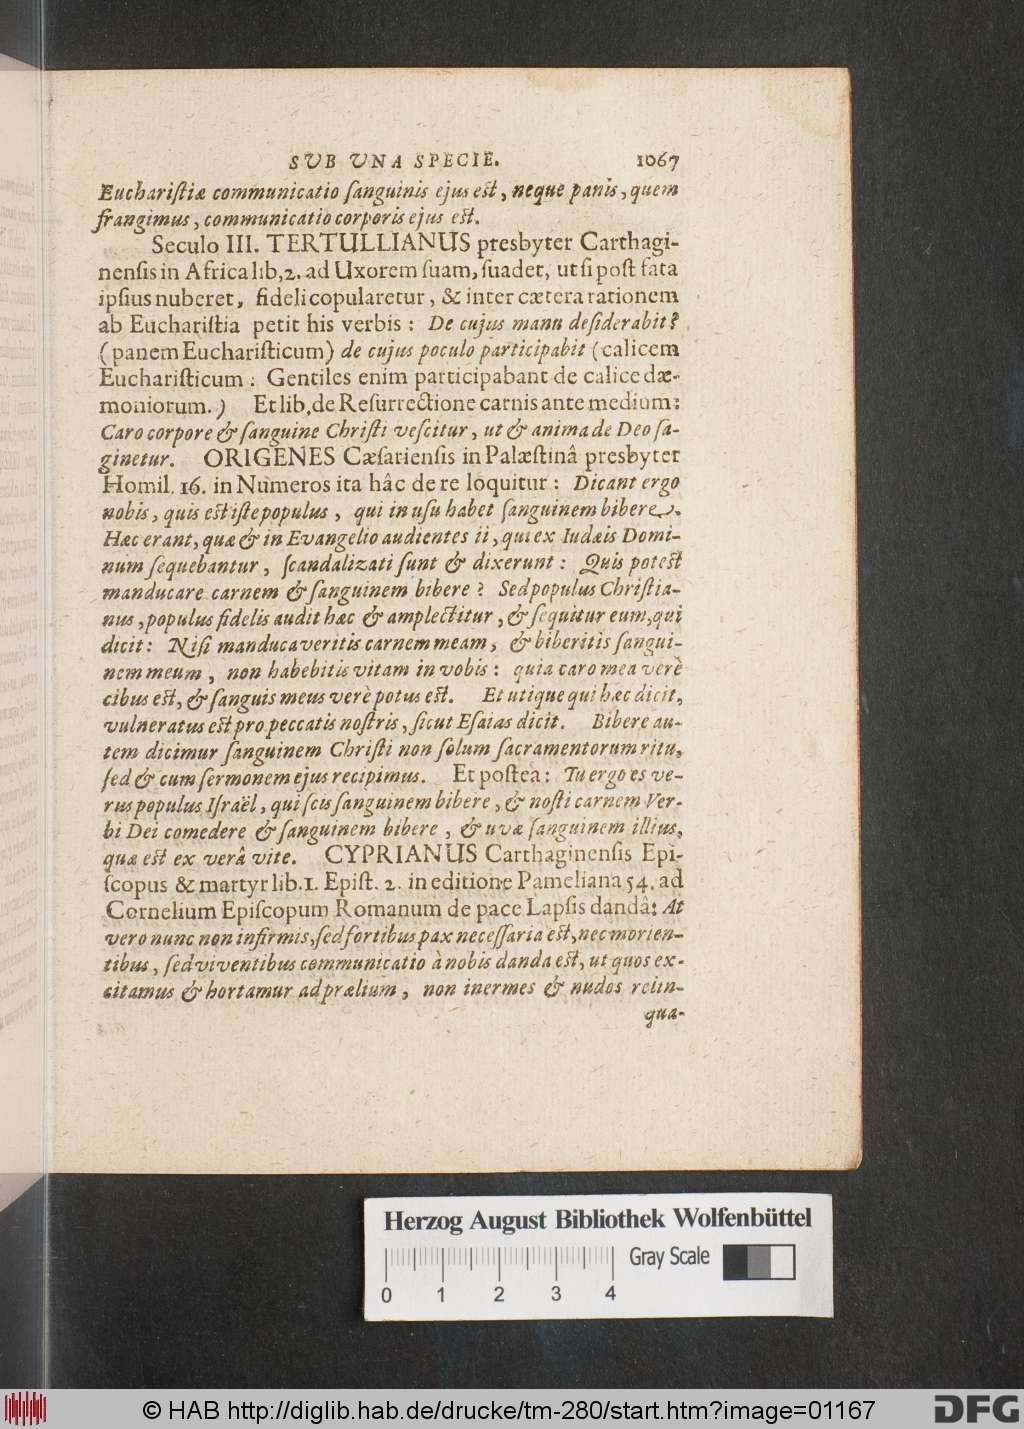 SUB UNA SPECIE. 1067
Euchariſtiæ communicatio ſanguinis ejus eſt, neque panis, quem
frangimus, communicatio corporis ejus eſt.
Seculo III. TERTULLIANUS presbyter Carthagi-
nenſis in Africa lib,2. ad Uxorem ſuam, ſuadet, ut ſi poſt fata
ipſius nuberet, fideli copularetur, & inter cætera rationem
ab Euchariſtia petit his verbis: De cujus manu deſiderabit?
(panem Euchariſticum) de cujus poculo participabit (calicem
Euchariſticum: Gentiles enim participabant de calice dæ-
moniorum.) Et lib, de Reſurrectione carnis ante medium:
Caro corpore & ſanguine Chriſti veſcitur, ut & anima de Deo ſa-
ginetur. ORIGENES Cæſarienſis in Palæſtinâ presbyter
Homil. 16. in Numeros ita hâc de re loquitur: Dicant ergo
nobis, quis eſt iſte populus, qui in uſu habet ſanguinem bibere.
Hæc erant, quæ & in Evangelio audientes ii, qui ex Iudæis Domi-
num ſequebantur, ſcandalizati ſunt & dixerunt: Quis poteſt
manducare carnem & ſanguinem bibere? Sed populus Chriſtia-
nus, populus fidelis audit hæc & amplectitur, & ſequitur eum, qui
dicit: Niſi manducaveritis carnem meam, & biberitis ſangui-
nem meum, non habebitis vitam in vobis: quia caro mea verè
cibus eſt, & ſanguis meus verè potus eſt. Et utique qui hæc dicit,
vulneratus eſt pro peccatis noſtris, ſicut Eſaias dicit. Bibere au-
tem dicimur ſanguinem Chriſti non ſolum ſacramentorum ritu,
ſed & cum ſermonem ejus recipimus. Et poſtea: Tu ergo es ve-
rus populus Iſraël, qui ſcis ſanguinem bibere, & noſti carnem Ver-
bi Dei comedere & ſanguinem bibere, & uvæ ſanguinem illius,
quæ eſt ex verâ vite. CYPRIANUS Carthaginenſis Epi-
ſcopus & martyr lib.1. Epiſt. 2. in editione Pameliana 54. ad
Cornelium Epiſcopum Romanum de pace Lapſis dandâ: At
vero nunc non infirmis, ſed fortibus pax neceſſaria eſt, nec morien-
tibus, ſed viventibus communicatio à nobis danda eſt, ut quos ex-
citamus & hortamur ad prælium, non inermes & nudos relin-
qua-
Herzog August Bibliothek Wolfenbüttel
Gray Scale
0 1 2 3 4
© HAB http://diglib.hab.de/drucke/tm-280/start.htm?image=01167
DFG